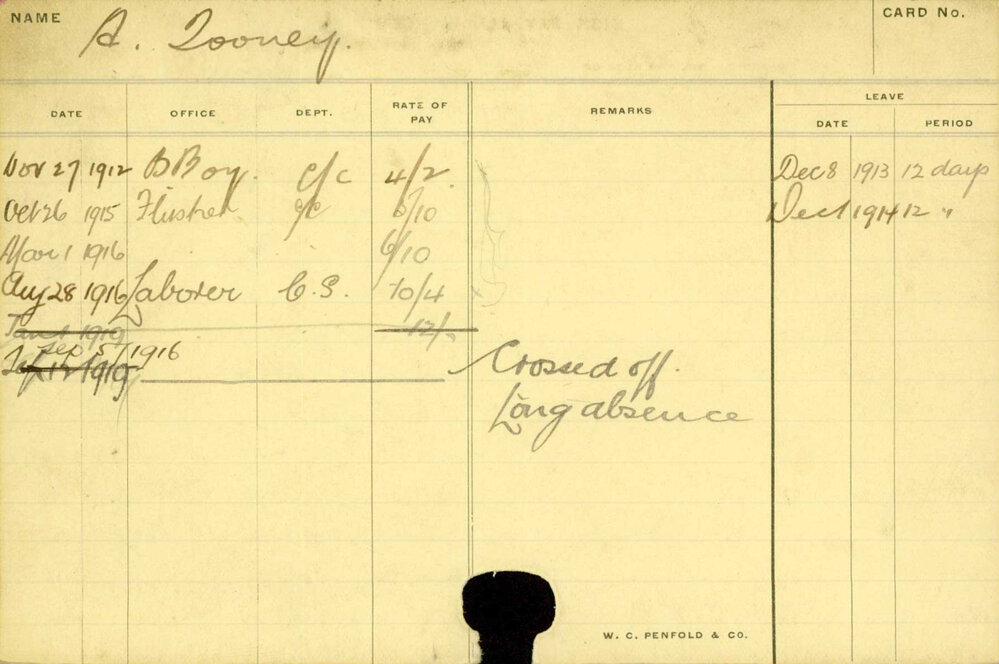 NAME A. Tooney. CARD No.
LEAVE
DATE OFFICE DEPT. RATE OF PAY REMARKS DATE PERIOD
Nov 27 1912 BBoy. c/c 4/2 Dec 8 1913 12 days
Oct 26 1915 Flusher c/c 6/10 Dec 1 1914 12 "
Mar 1 1916 6/10
Aug 28 1916 Laborer C.S. 10/4
Jan 1 1919 12/-
Sep 5/1916
Crossed off.
Long absence
W. C. PENFOLD & CO.